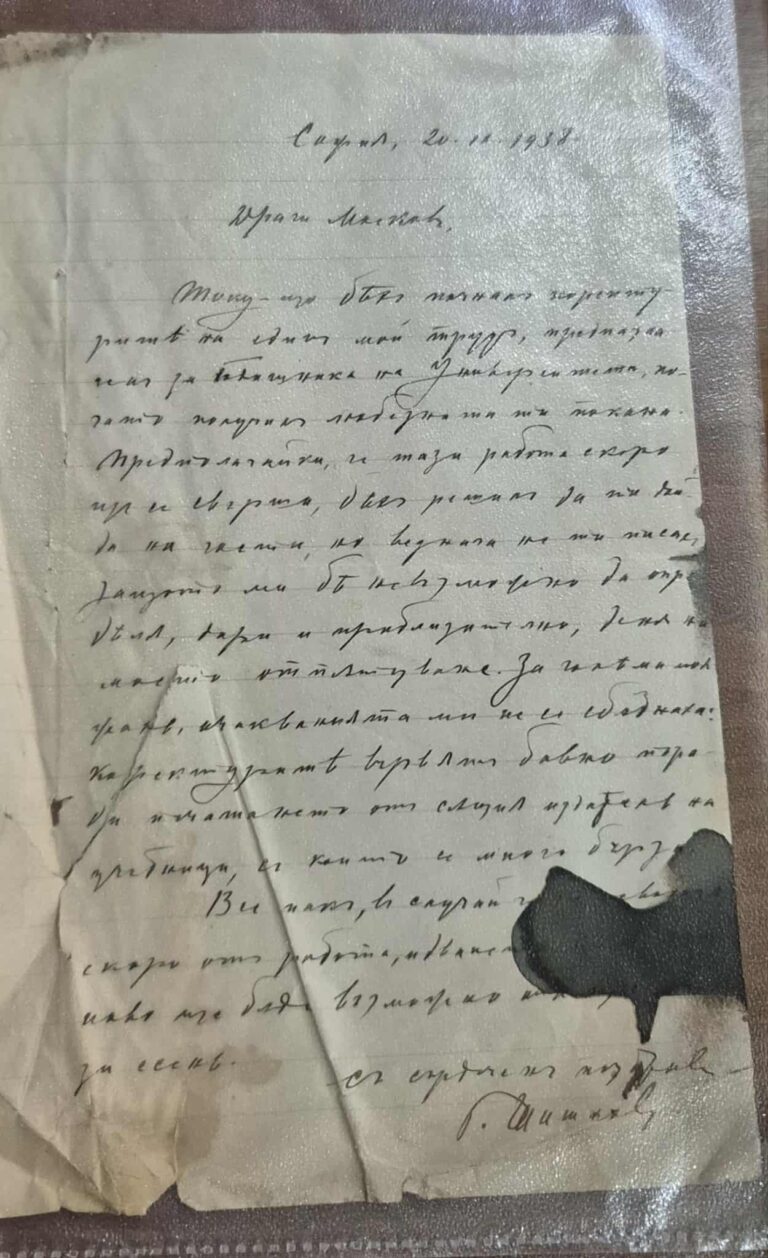 София, 20.IX.1938
Драги Москов,
Току-що бѣх почнал коректу-
ритѣ на един мой труд, предназна-
чен за Годишника на Университета, ко-
гато получих любезната ти покана.
Предполагайки, че тази работа скоро
ще се свърши, бѣх решил да ти дой-
да на гости, но веднага не ти писах,
защото ми бѣ невъзможно да опре-
дѣля, дори и приблизително, деня на
моето отпътуване. За голѣмо мое
очакванията ми не се сбѫднаха:
коректуритѣ вървят бавно пора-
ди печатането от същия издател на
учебници, с които се много бърза
Все пак, в случай че
скоро от работа, идването
ново ще бѫде възможно
за есен.
съ сърдечен поздрав
Г. Шишков